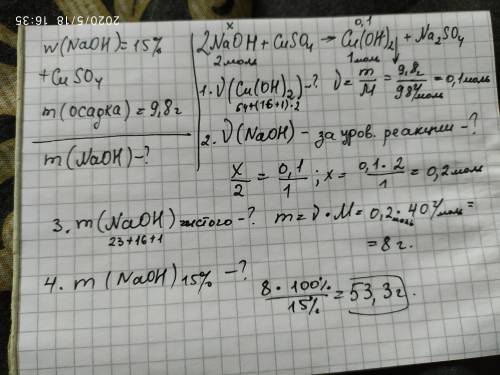 2020/5/18 16:35
w(NaOH)=15%
+CuSO₄
m(осадка)=9,8г
m(NaOH)-?
x 0,1
2NaOH+CuSO₄→Cu(OH)₂↓+Na₂SO₄
2моль 1моль
1. ν(Cu(OH)₂)-? ν=m/M=9,8г/98г/моль=0,1моль
64+(16+1)·2
2. ν(NaOH) - за уров. реакции -?
x/2=0,1/1; x=0,1·2/1=0,2моль
3. m(NaOH)чистого-? m=ν·M=0,2моль·40г/моль=
23+16+1
=8г.
4. m(NaOH)15%-? 8·100%/15%=53,3г.